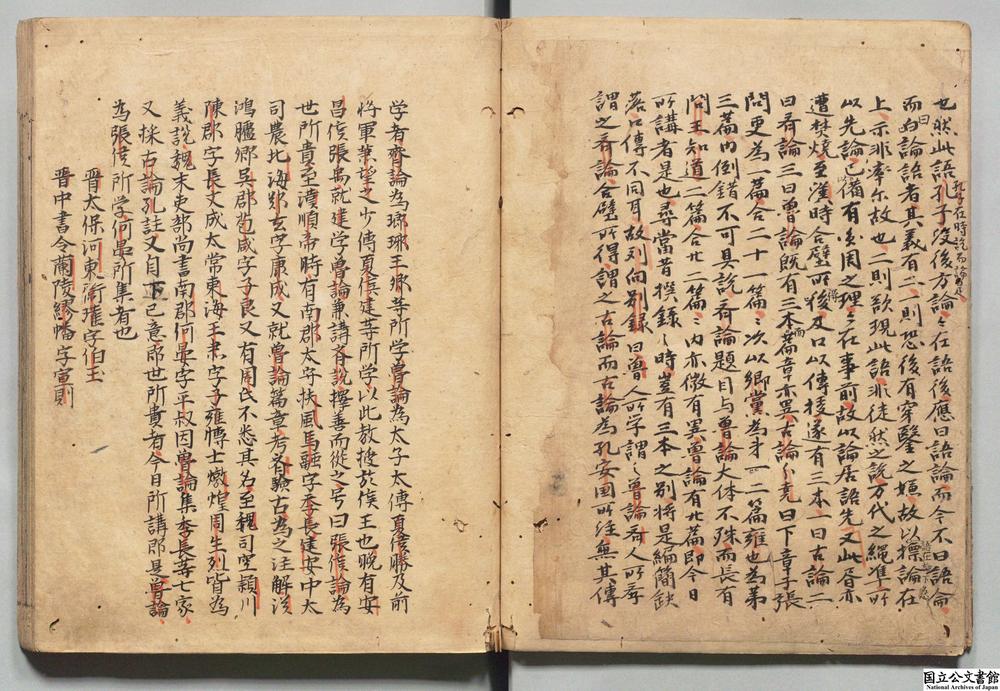 也然此語孔子没後方論〻在語後應曰語論而今不曰語論
而曰論語者其義有二一則恐後有穿鑿之嫌故以摽論在
上示非率尓故也二則欲現此語非徒然之說万代之繩准所
以先論已備有圎周之理〻在事前故以論居語先又此書亦
遭焚燒至漢時合壁所得及口以傳授遂有三本一曰古論二
曰斉論三曰魯論既有三本而篇章亦異古論分堯曰下章子張
問更為一篇合二十一篇次以郷黨為第二篇雍也為第
三篇内倒錯不可具說斉論題目与魯論大体不殊而長有
問王知道二篇合廿二篇〻内亦微有異魯論有廿篇即今日
所講者是也尋當昔撰錄〻時豈有三本之別将是編簡缺
落口傳不同耳故刘向別録曰魯人所学謂〻魯論斉人所学
謂之斉論合壁所得謂之古論而古論為孔安国所注無其傳
学者斉論為琅琊王卿等所学魯論為太子太傳夏侯勝及前
将軍蕭望之少傳夏侯建等所学以此教授於侯王也晩有安
昌侯張禹就建学魯論兼講斉說擇善而從之号曰張侯論為
世所貴至漢順帝時有南郡太守扶風馬融字季長建安中大
司農北海鄭玄字康成又就魯論篇章考斉驗古為之注解漢
鴻臚卿吳郡苞咸字子良又有周氏不悉其名至魏司空頴川
陳郡字長文成太常東海王肅字子雍博士燉煌周生列皆為
義說魏末吏部尚書南郡何晏字平叔因魯論集季長等七家
又採古論孔註又自下己意即世所貴者今日所講即是魯論
為張侯所学何晏所集者也
晋太保河東衛瓘字伯玉
晋中書令蘭陵繆播字宣則
国立公文書館
National Archives of Japan